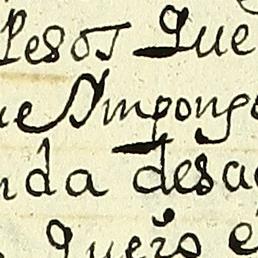 Pesos Que
ue Ympong
nda desa
Quero e